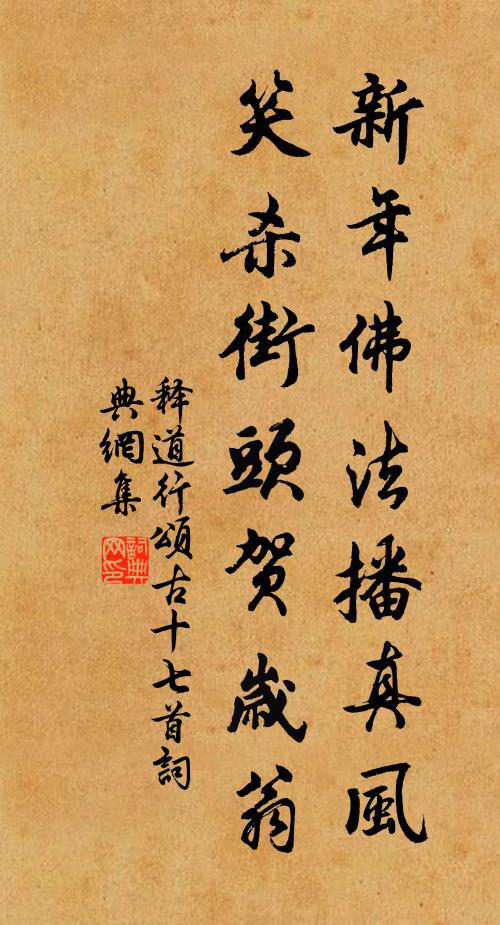 新年佛法播真風
笑杀街頭賀歲翁
释道行頌古十七首詞
典網集
詞典
网印